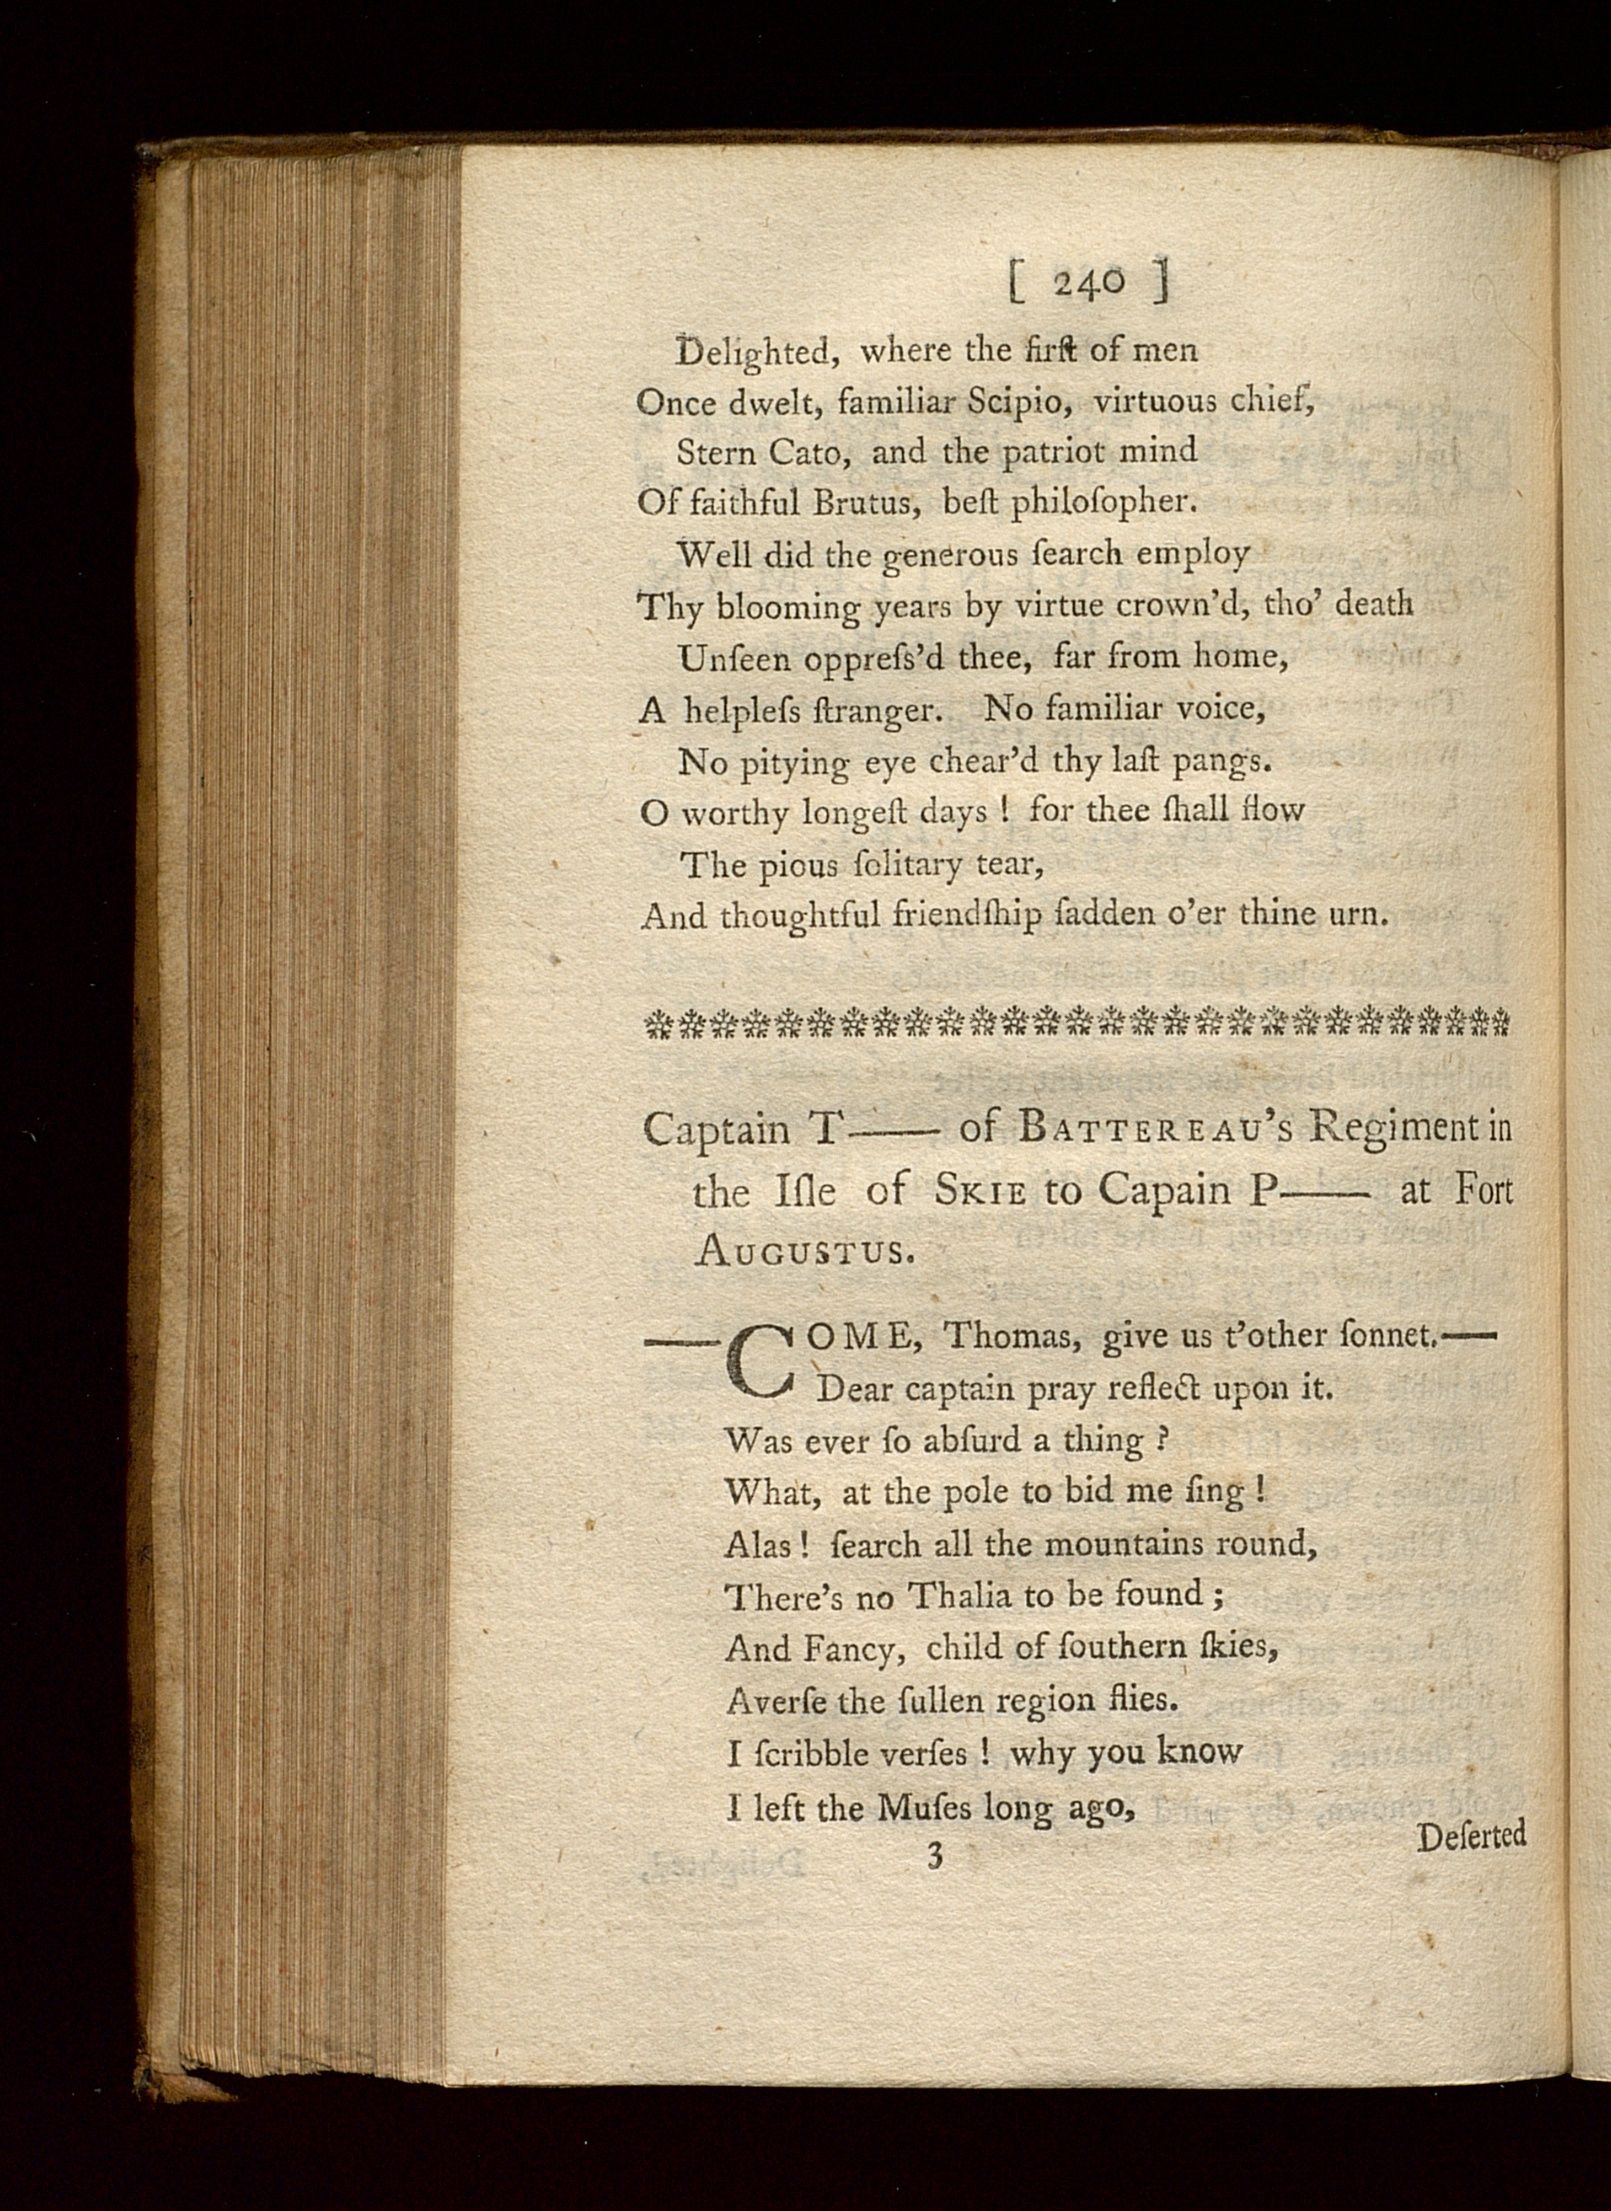 [ 240 ]
Delighted, where the firſt of men
Once dwelt, familiar Scipio, virtuous chief,
Stern Cato, and the patriot mind
Of faithful Brutus, beſt philoſopher.
Well did the generous ſearch employ
Thy blooming years by virtue crown'd, tho' death
Unſeen oppreſs'd thee, far from home,
A helpleſs ſtranger. No familiar voice,
No pitying eye chear'd thy laſt pangs.
O worthy longeſt days ! for thee ſhall flow
The pious ſolitary tear,
And thoughtful friendſhip ſadden o'er thine urn.
Captain T—— of BATTEREAU'S Regiment in
the Iſle of SKIE to Capain P—— at Fort
AUGUSTUS.
—COME, Thomas, give us t'other ſonnet.—
Dear captain pray reflect upon it.
Was ever ſo abſurd a thing ?
What, at the pole to bid me ſing !
Alas ! ſearch all the mountains round,
There's no Thalia to be found ;
And Fancy, child of ſouthern ſkies,
Averſe the ſullen region flies.
I ſcribble verſes ! why you know
I left the Muſes long ago,
3 Deſerted